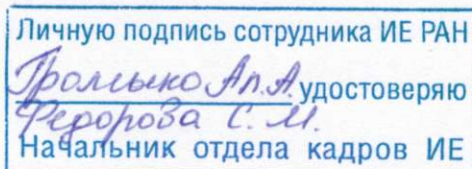 Личную подпись сотрудника ИЕ РАН
Громыко Ал.А. удостоверяю
Федорова С.М.
Начальник отдела кадров ИЕ